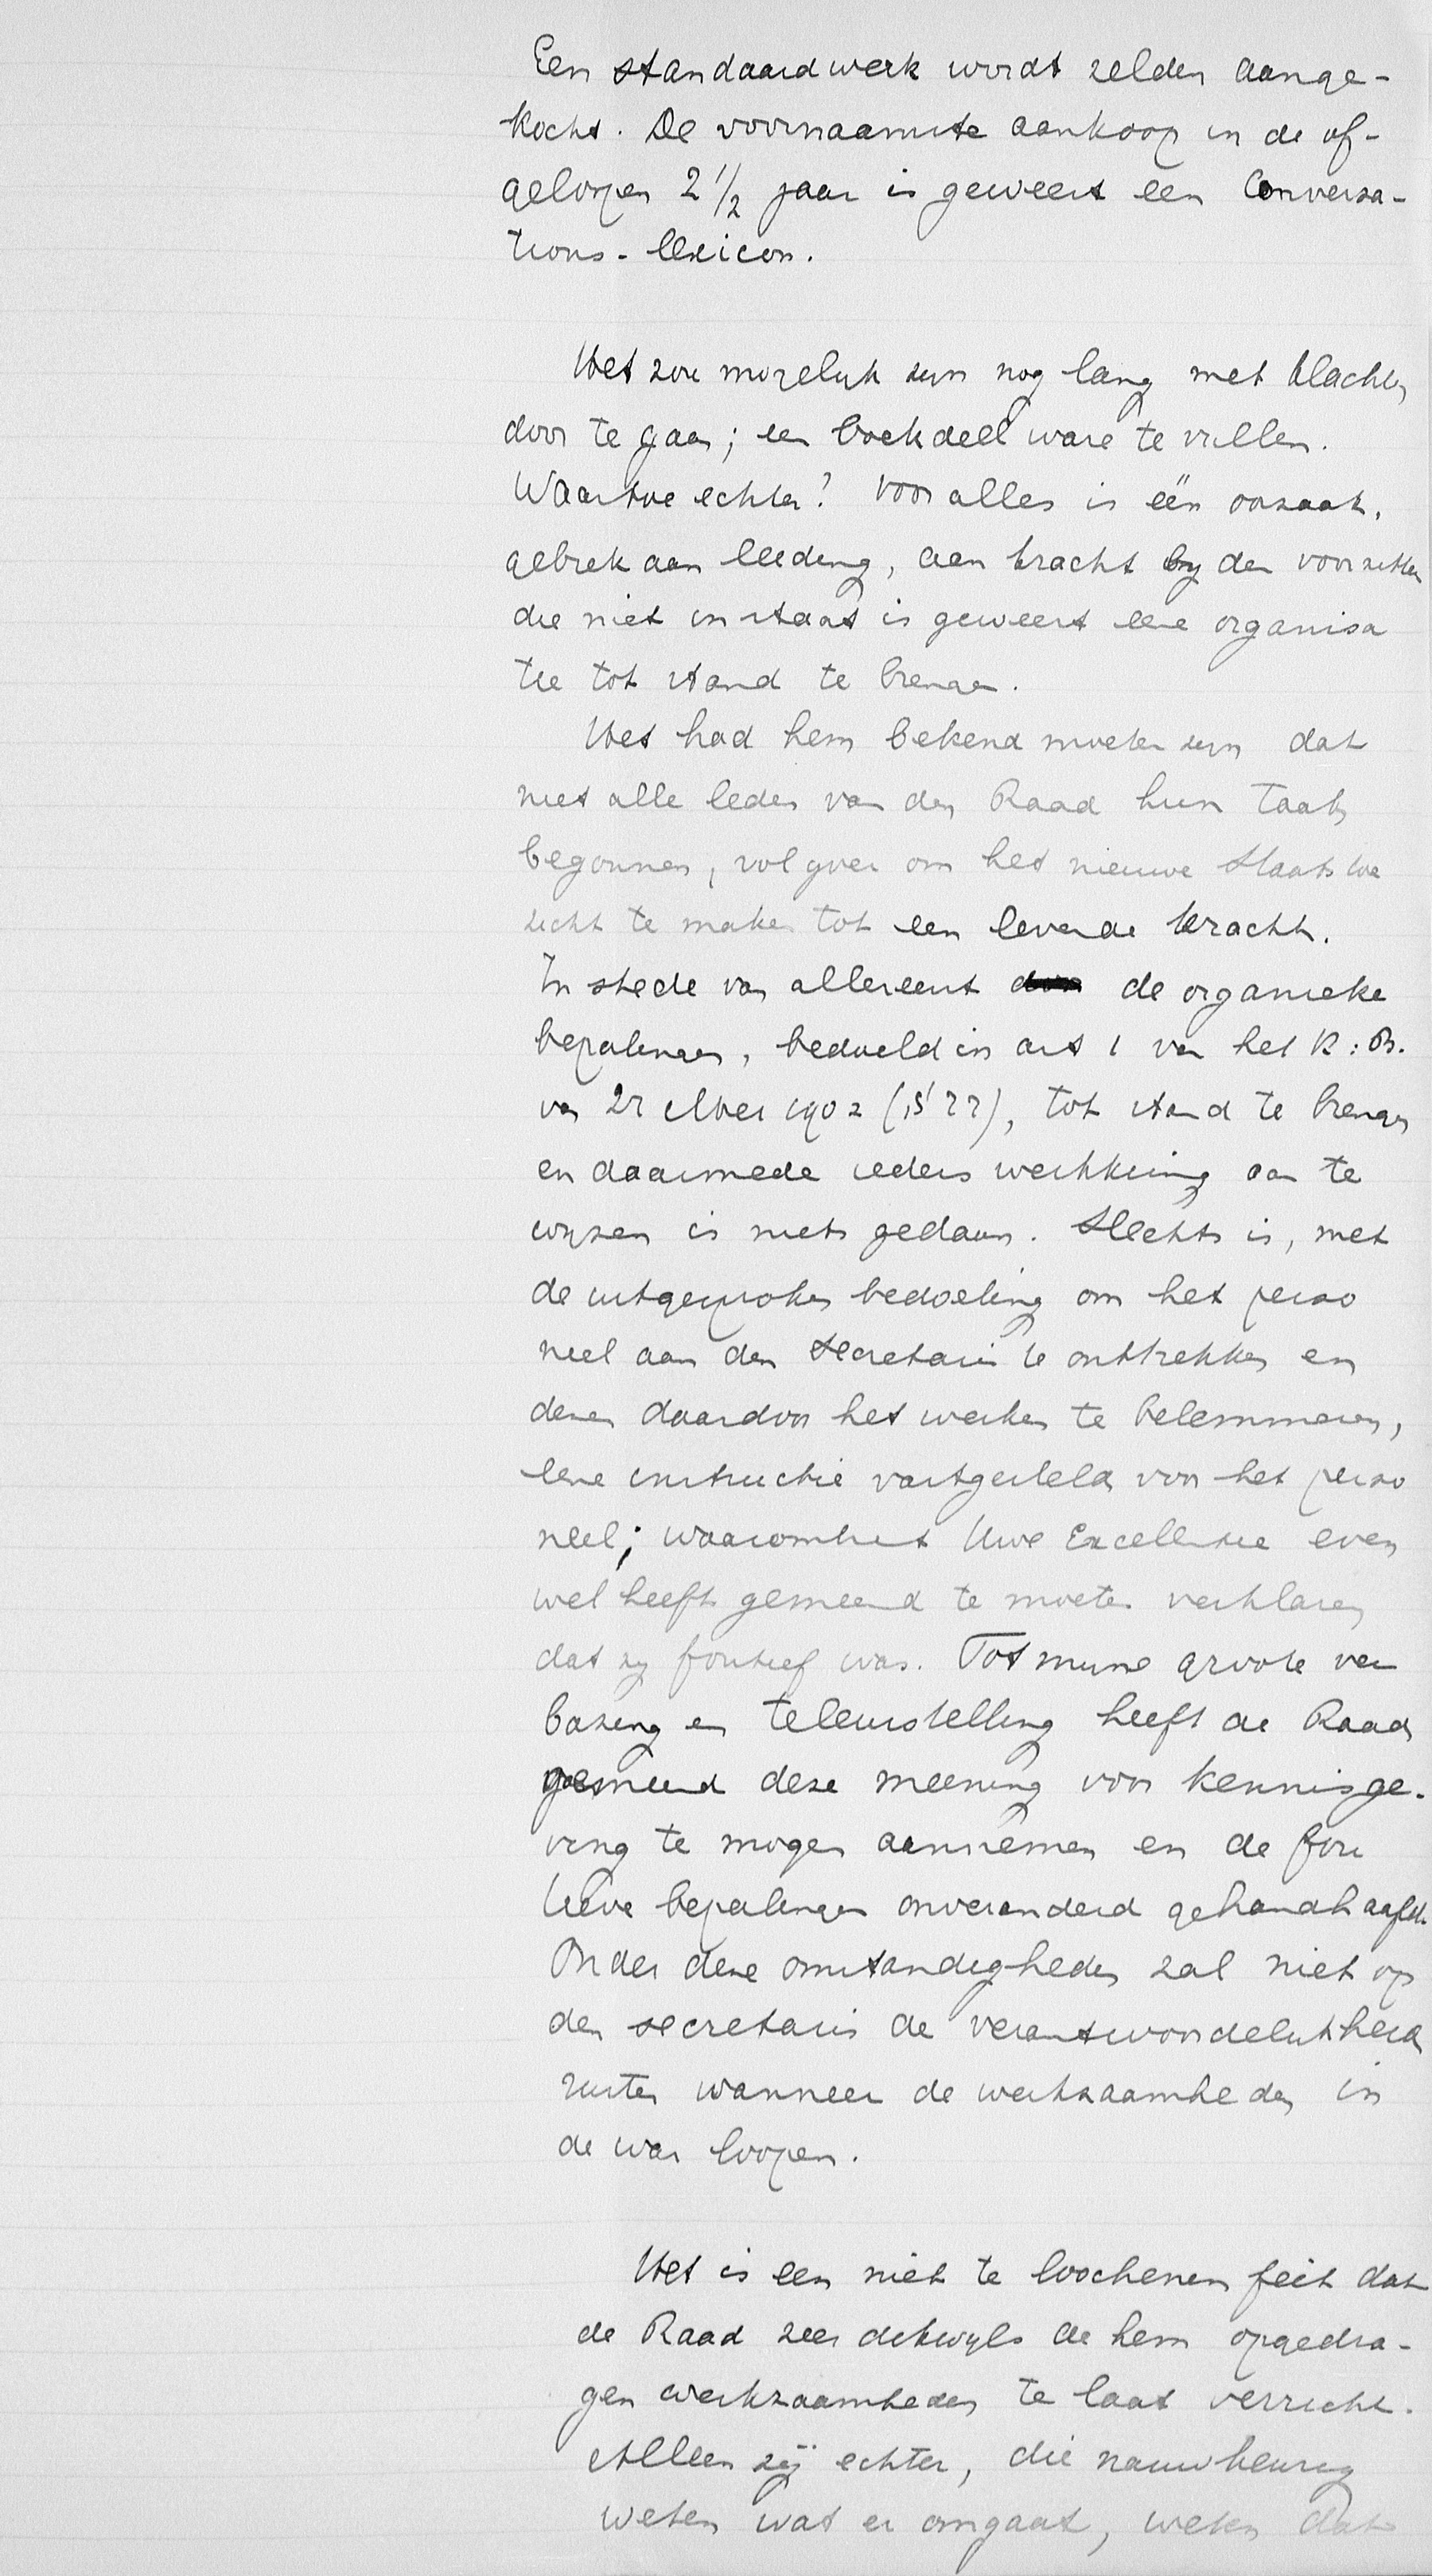 Een standaardwerk wordt zelden aange-
kocht. De voornaamste aankoop in de af-
geloopen 2 1/2 jaar is geweest een Conversa-
tions-lexicon.
Het zou mogelijk zijn nog lang met klachten
door te gaan; een boekdeel ware te vullen.
Waartoe echter? Voor alles is één oorzaak,
gebrek aan leiding, aan kracht bij den voorzitter
die niet in staat is geweest eene organisa
tie tot stand te brengen.
Het had hem bekend moeten zijn dat
niet alle leden van den Raad hun taak
begonnen, vol ijver om het nieuwe Staatstoe
zicht te maken tot een levende kracht.
In stede van allereerst de organieke
bepalingen, bedoeld in art 1 van het K:B.
van 27 Mei 1902 (S 77), tot stand te brengen
en daarmede ieders werkkring aan te
wijzen is niets gedaan. Slechts is, met
de uitgesproken bedoeling om het perso
neel aan den Secretaris te onttrekken en
dezen daardoor het werken te belemmeren,
eene instructie vastgesteld voor het perso
neel; waaromtrent Uwe Excellentie even
wel heeft gemeend te moeten verklaren
dat zij foutief was. Tot mijne groote ver
bazing en teleurstelling heeft de Raad
gemeend deze meening voor kennisge-
ving te mogen aannemen en de fou
tieve bepalingen onveranderd gehandhaafd.
Onder deze omstandigheden zal niet op
den secretaris de verantwoordelijkheid
rusten wanneer de werkzaamheden in
de war loopen.
Het is een niet te loochenen feit dat
de Raad zeer dikwijls de hem opgedra-
gen werkzaamheden te laat verricht.
Alleen zij echter, die nauwkeurig
weten wat er omgaat, weten dat